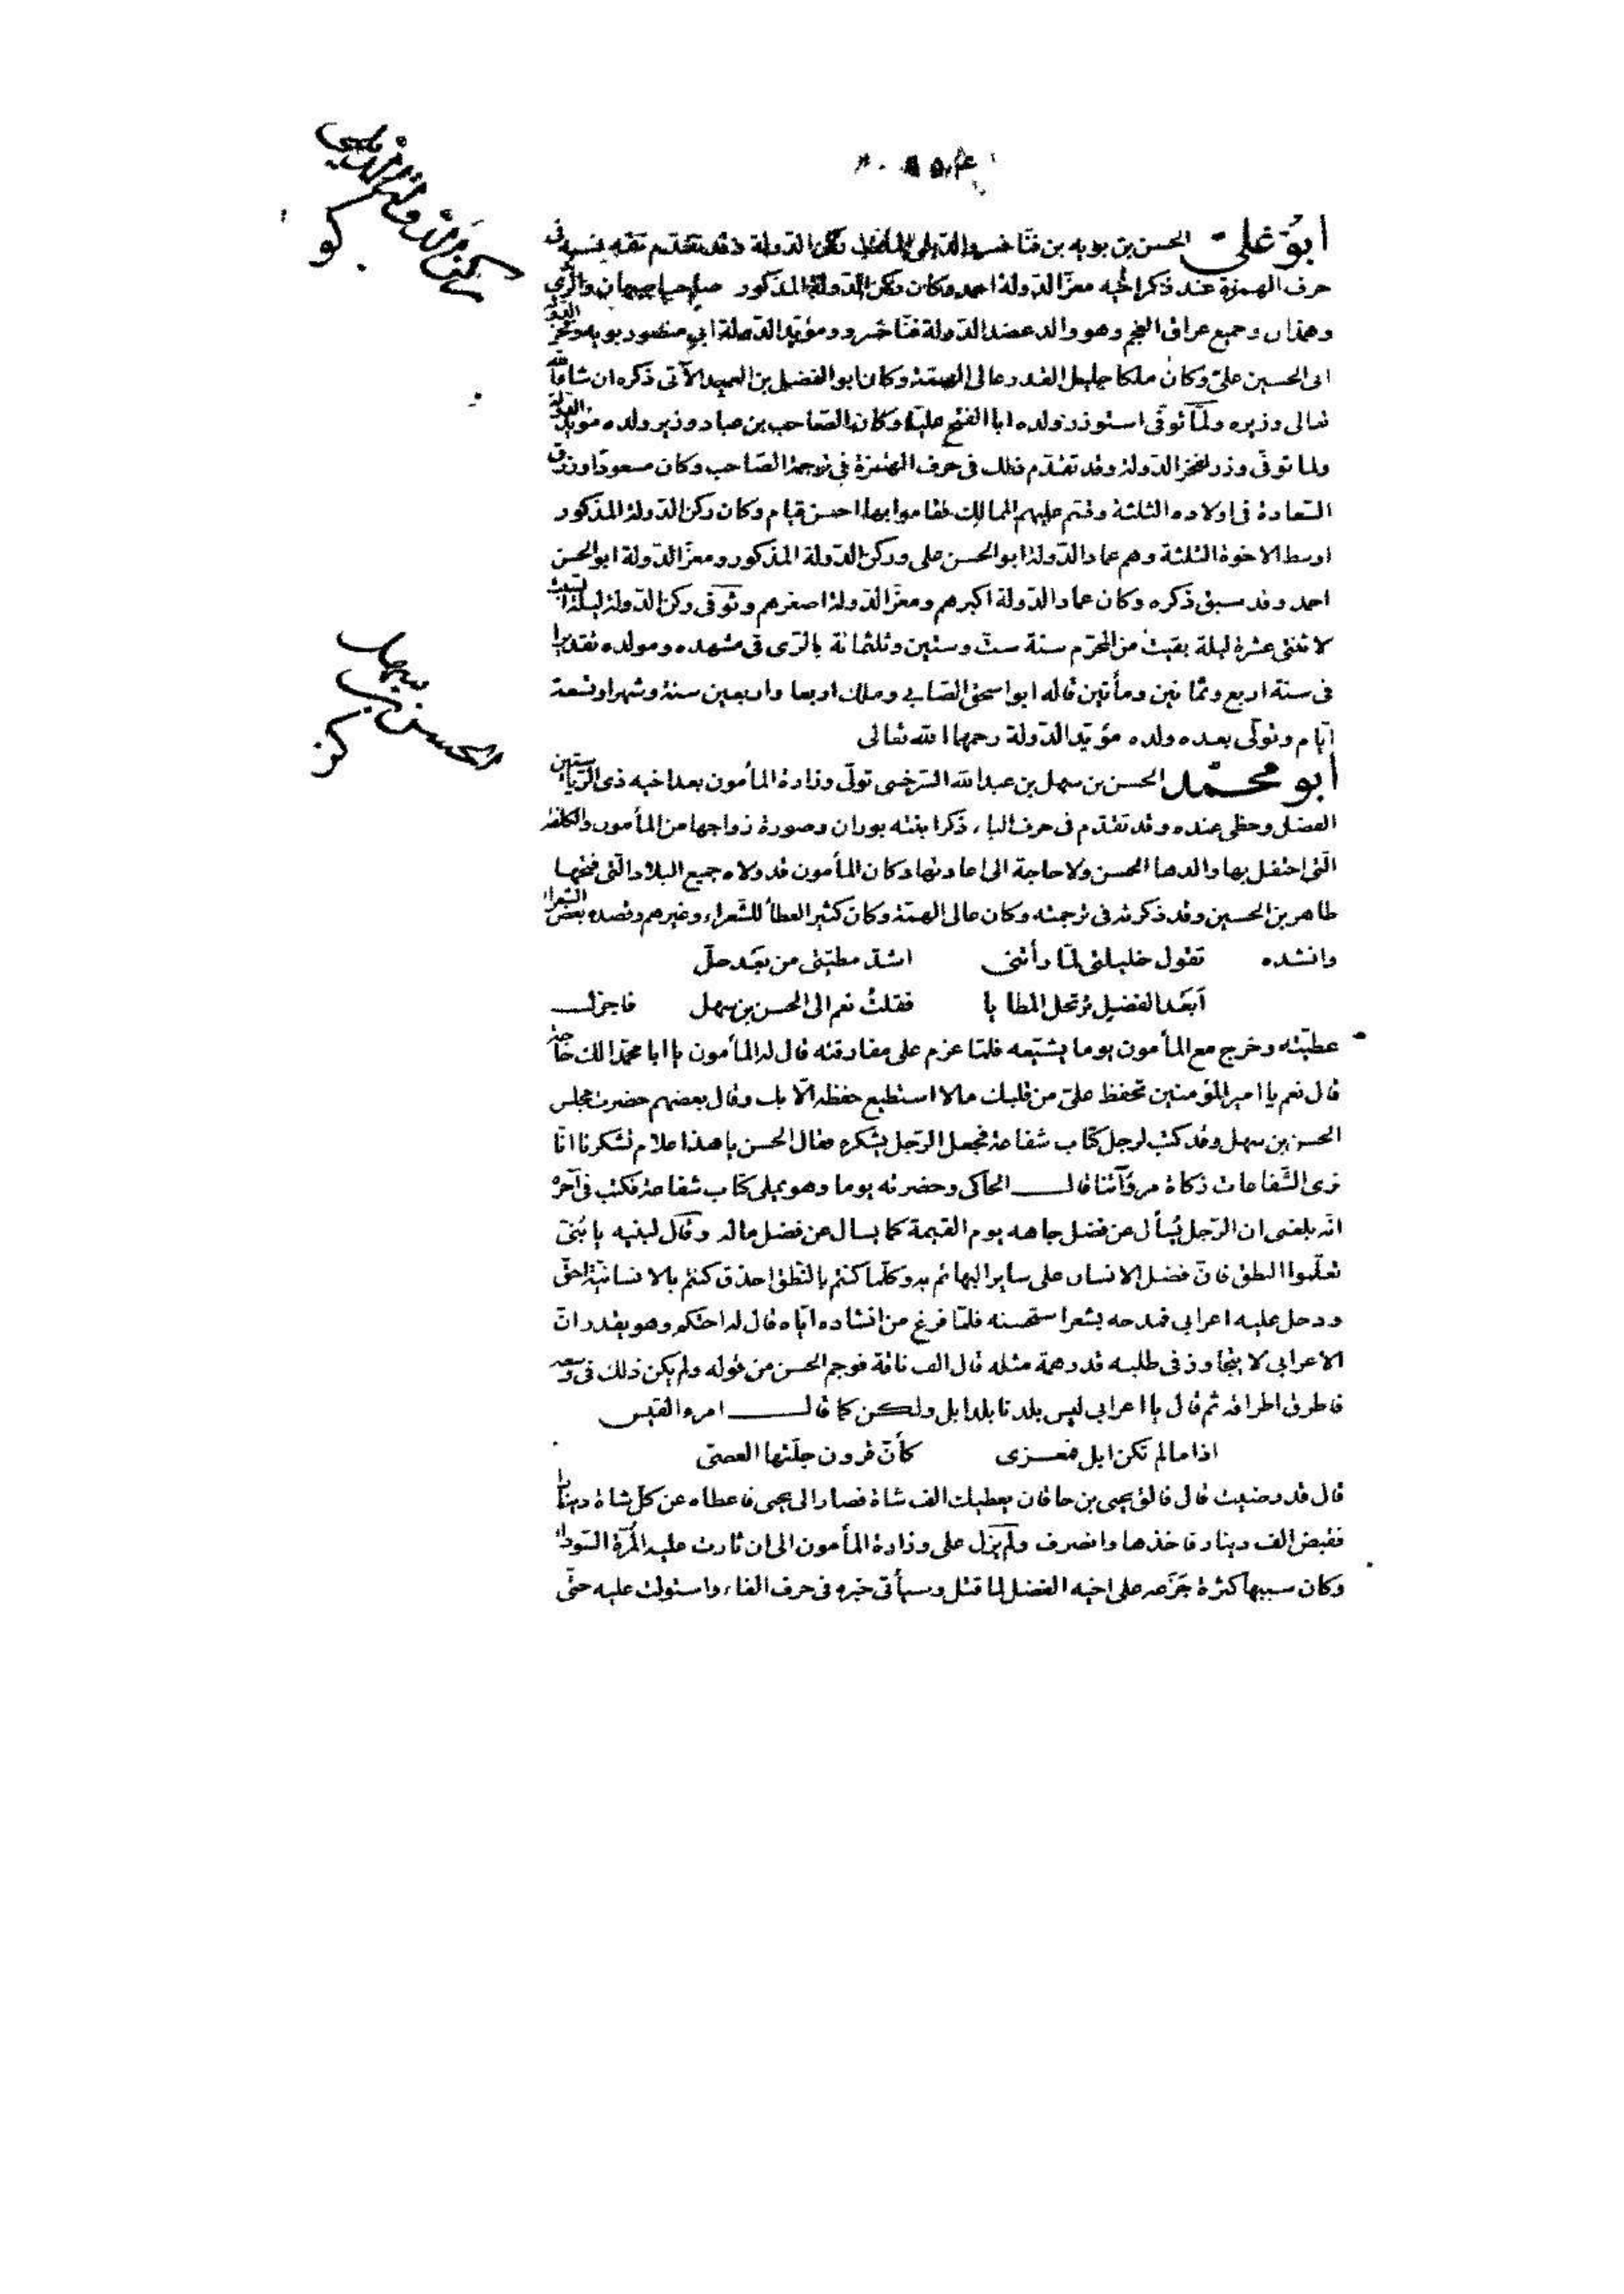 ١٥٤
أبو علي الحسن بن بويه بن فناخسرو الديلمي الملقب ركن الدولة وقد تقدم تتمة نسبه في
حرف الهمزة عند ذكر اخيه معز الدولة احمد وكان ركن الدولة المذكور صاحب اصبهان والري
وهمذان وجميع عراق العجم وهو والد عضد الدولة فنا خسرو ومؤيد الدولة ابي منصور بويه وفخر الدولة
ابى الحسين علي وكان ملكا جليل القدر عالى الهمة وكان ابو الفضل بن العميد الآتى ذكره ان شاء الله
تعالى وزيره ولما توفي استوزر ولده ابا الفتح عليا وكان الصاحب بن عباد وزير ولده مؤيد الدولة
ولما توفي وزر لفخر الدولة وقد تقدم ذلك في حرف الهمزة في ترجمة الصاحب وكان مسعودا ورزق
السعادة فى اولاده الثلثة وقسم عليهم الممالك فقاموا بها احسن قيام وكان ركن الدولة المذكور
اوسط الاخوة الثلثة وهم عماد الدولة ابو الحسن على وركن الدولة المذكور ومعز الدولة ابو الحسن
احمد وقد سبق ذكره وكان عماد الدولة اكبرهم ومعز الدولة اصغرهم وتوفى ركن الدولة ليلة السبت
لاثنتى عشرة ليلة بقيت من المحرم سنة ست وستين وثلثمائة بالرى فى مشهده ومولده تقديرا
فى سنة اربع وثمانين ومأتين قاله ابو اسحق الصابي وملك اربعا واربعين سنة وشهرا وتسعة
أيام وتولى بعده ولده مؤيد الدولة رحمهما الله تعالى
أبو محمد الحسن بن سهل بن عبد الله السرخسى تولى وزارة المأمون بعد اخيه ذى الرياستين
الفضل وحظى عنده وقد تقدم فى حرف الباء ذكر ابنته بوران وصورة زواجها من المأمون والكلفة
التى احتفل بها والدها الحسن ولا حاجة الى اعادتها وكان المأمون قد ولاه جميع البلاد التى فتحها
طاهر بن الحسين وقد ذكرته فى ترجمته وكان عالى الهمة وكان كثير العطأ للشعراء وغيرهم وقصده بعض الشعراء
وانشده تقول خليلتى لما رأتنى اشد مطيتى من بعد حل
أبعد الفضل ترتحل المطايا فقلت نعم الى الحسن بن سهل فاجزل
عطيته وخرج مع المأمون يوما يشيعه فلما عزم على مفارقته قال له المأمون يا ابا محمد الك حاجة
قال نعم يا امير المؤمنين تحفظ على من قلبك مالا استطيع حفظه الا بك وقال بعضهم حضرت مجلس
الحسن بن سهل وقد كتب لرجل كتاب شفاعة فجعل الرجل يشكره فقال الحسن يا هذا علام تشكرنا انا
نرى الشفاعات زكاة مروآتنا قال الحاكى وحضرته يوما وهو يملى كتاب شفاعة فكتب فى آخره
انه بلغنى ان الرجل يسأل عن فضل جاهه يوم القيمة كما يسال عن فضل ماله وقال لبنيه يا بنى
تعلموا النطق فان فضل الانسان على ساير البهائم به وكلما كنتم بالنطق احذق كنتم بالانسانية احق
ودخل عليه اعرابى فمدحه بشعر استحسنه فلما فرغ من انشاده اياه قال له احتكم وهو يقدر ان
الاعرابى لا يتجاوز فى طلبه قدر همة مثله قال الف ناقة فوجم الحسن من قوله ولم يكن ذلك فى وسعه
فاطرق اطراقة ثم قال يا اعرابى ليس بلدنا بلد ابل ولكن كما قال امرء القيس
اذا مالم تكن ابل فمعزى كأن قرون جلتها العصى
قال قد رضيت قال فالق يحيى بن خاقان يعطيك الف شاة فصار الى يحيى فاعطاه عن كل شاة دينارا
فقبض الف دينار فاخذها وانصرف ولم يزل على وزارة المأمون الى ان ثارت عليه المرة السوداء
وكان سببها كثرة جزعه على اخيه الفضل لما قتل وسيأتى خبره فى حرف الفاء واستولت عليه حتى
كو
الحسن بن سهل
كز